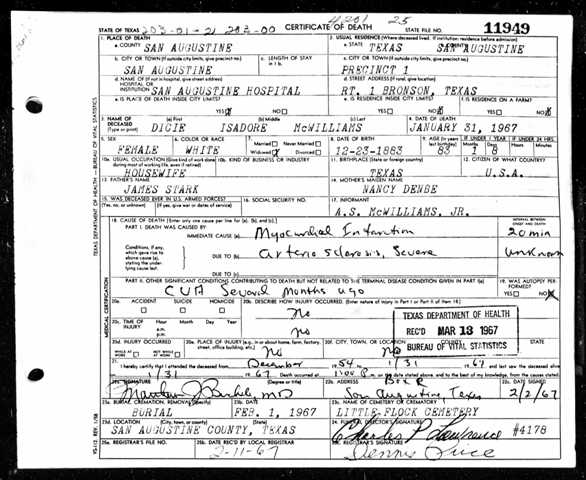 4201 25
STATE OF TEXAS 203-01-2 203-00 CERTIFICATE OF DEATH STATE FILE NO. 11949
1. PLACE OF DEATH 2. USUAL RESIDENCE (Where deceased lived. If institution: residence before admission)
a. COUNTY SAN AUGUSTINE a. STATE TEXAS COUNTY SAN AUGUSTINE
b. CITY OR TOWN (If outside city limits, give precinct no.) c. LENGTH OF STAY c. CITY OR TOWN (If outside city limits, give precinct no.)
SAN AUGUSTINE PRECINCT 1
d. NAME OF (If not in hospital, give street address) HOSPITAL OR INSTITUTION d. STREET ADDRESS (If rural, give location)
SAN AUGUSTINE HOSPITAL RT. 1 BRONSON, TEXAS
e. IS PLACE OF DEATH INSIDE CITY LIMITS? e. IS RESIDENCE INSIDE CITY LIMITS? f. IS RESIDENCE ON A FARM?
YES NO YES NO YES NO
3. NAME OF DECEASED (Type or print) (a) First (b) Middle (c) Last 4. DATE OF DEATH
DICIE ISADORE McWILLIAMS JANUARY 31, 1967
5. SEX 6. COLOR OR RACE 7. Married Never Married Widowed Divorced 8. DATE OF BIRTH 9. AGE (In years last birthday) IF UNDER 1 YEAR IF UNDER 24 HRS.
Months Days Hours Minutes
FEMALE WHITE 12-23-1883 83 1 8
10a. USUAL OCCUPATION (Give kind of work done during most of working life, even if retired) 10b. KIND OF BUSINESS OR INDUSTRY 11. BIRTHPLACE (State or foreign country) 12. CITIZEN OF WHAT COUNTRY?
HOUSEWIFE TEXAS U.S.A.
13. FATHER'S NAME 14. MOTHER'S MAIDEN NAME
JAMES STARK NANCY DENBE
15. WAS DECEASED EVER IN U.S. ARMED FORCES? 16. SOCIAL SECURITY NO. 17. INFORMANT
(Yes, no, or unknown) (If yes, give war or dates of service)
A.S. McWILLIAMS, JR.
18. CAUSE OF DEATH (Enter only one cause per line for (a), (b), and (c).) INTERVAL BETWEEN ONSET AND DEATH
PART I. DEATH WAS CAUSED BY:
IMMEDIATE CAUSE (a) Myocardial Infarction 20 min
Conditions, if any, which gave rise to above cause (a), stating the underlying cause last. DUE TO (b) arterio sclerosis, Severe unknown
DUE TO (c)
PART II. OTHER SIGNIFICANT CONDITIONS CONTRIBUTING TO DEATH BUT NOT RELATED TO THE TERMINAL DISEASE CONDITION GIVEN IN PART I(a) 19. WAS AUTOPSY PERFORMED?
CVA Several months ago YES NO
20a. ACCIDENT SUICIDE HOMICIDE 20b. DESCRIBE HOW INJURY OCCURRED. (Enter nature of injury in Part I or Part II of item 18.)
No
20c. TIME OF INJURY Hour Month Day Year a.m. p.m.
No
TEXAS DEPARTMENT OF HEALTH
REC'D MAR 13 1967
BUREAU OF VITAL STATISTICS
20d. INJURY OCCURRED WHILE AT WORK NOT WHILE AT WORK 20e. PLACE OF INJURY (e.g. in or about home, farm, factory, street, office building, etc.) 20f. CITY, TOWN, OR LOCATION COUNTY
No No
21. I hereby certify that I attended the deceased from December 1954 to 1/31 1967 and last saw the deceased alive
on 1/31 1967. Death occurred at m. on the date stated above, and to the best of my knowledge, from the causes stated.
22a. SIGNATURE (Degree or title) MD 22b. ADDRESS Box R San Augustine Texas 22c. DATE SIGNED 2/2/67
23a. BURIAL, CREMATION, REMOVAL (Specify) 23b. DATE 23c. NAME OF CEMETERY OR CREMATORY
BURIAL FEB. 1, 1967 LITTLE FLOCK CEMETERY
23d. LOCATION (City, town, or county) (State) 24. FUNERAL DIRECTOR'S SIGNATURE
SAN AUGUSTINE COUNTY, TEXAS Charles P. Lawrence #4178
25a. REGISTRAR'S FILE NO. 25b. DATE REC'D BY LOCAL REGISTRAR 25c. REGISTRAR'S SIGNATURE
2-11-67 Dennis Price
TEXAS DEPARTMENT OF HEALTH — BUREAU OF VITAL STATISTICS
MEDICAL CERTIFICATION
VS-112 REV. 1/58